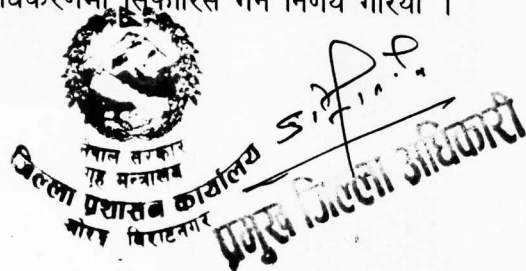 सिफारिस गर्ने निर्णय गरियो ।
नेपाल सरकार
गृह मन्त्रालय
जिल्ला प्रशासन कार्यालय
मोरङ बिराटनगर
प्रमुख जिल्ला अधिकारी